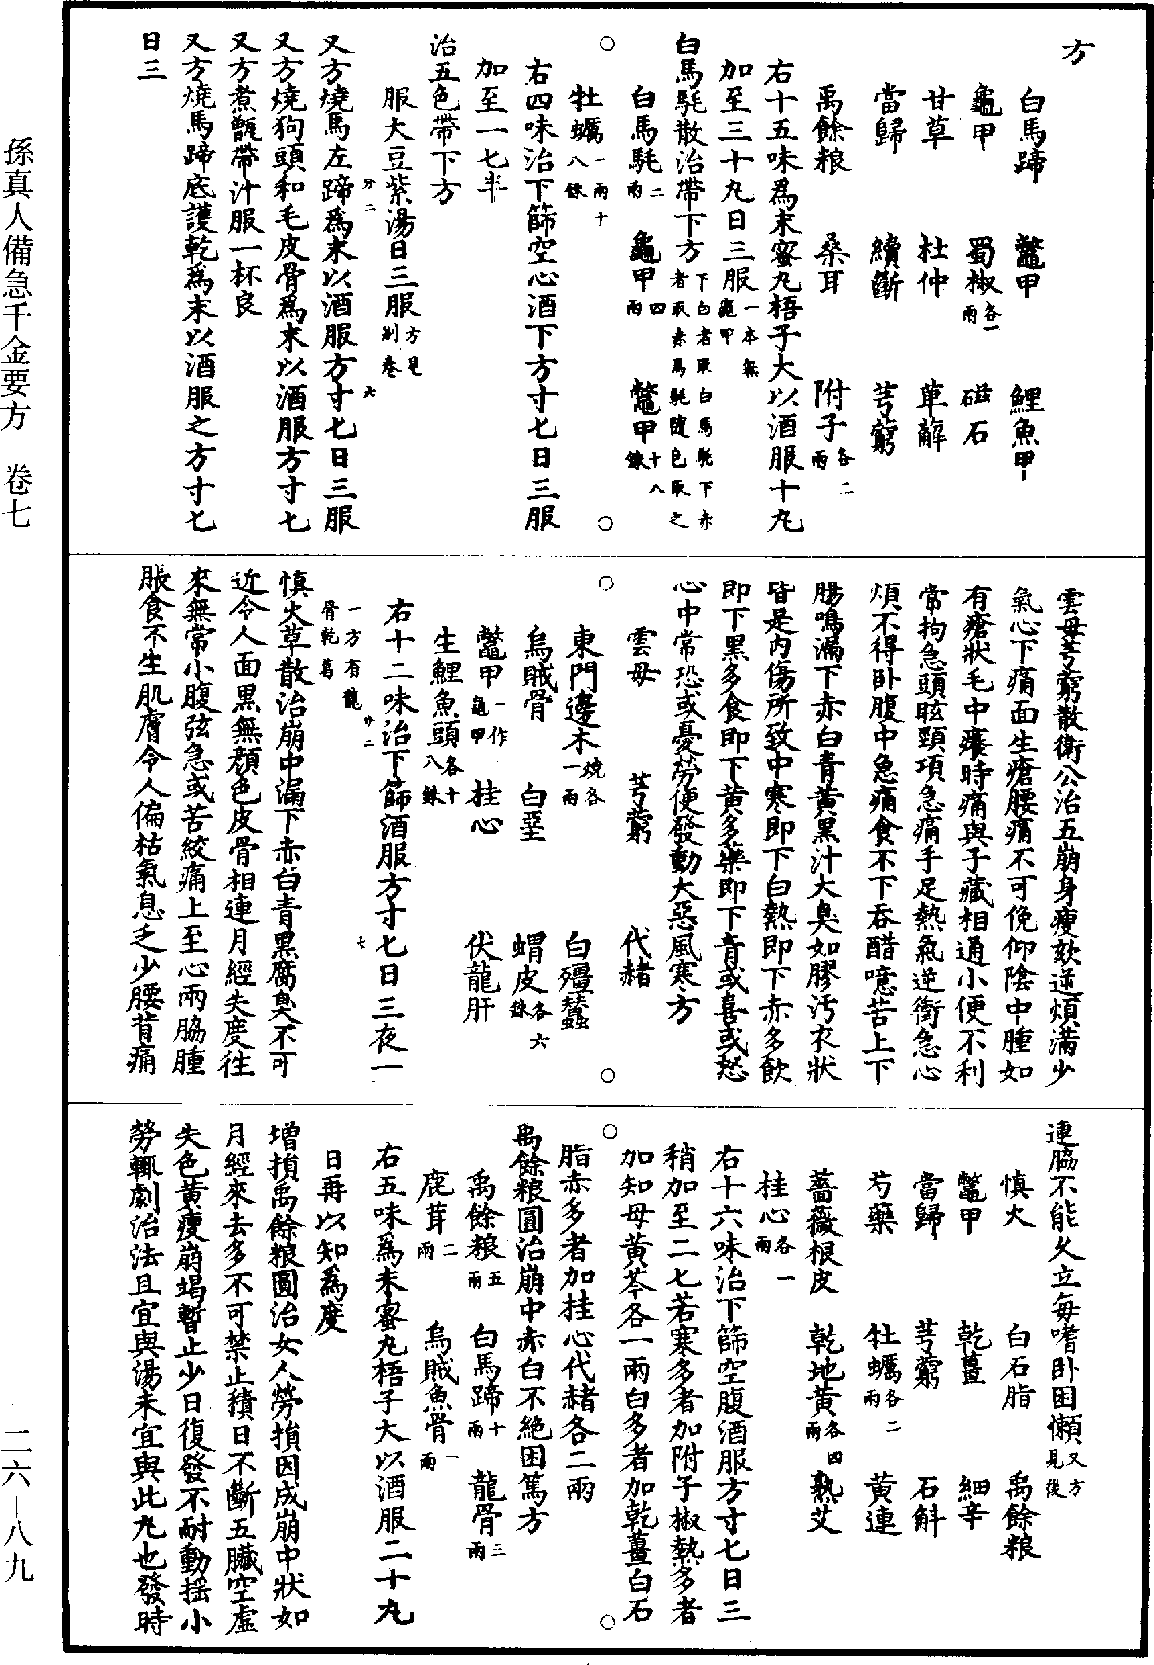 方
白馬蹄　鼈甲　鯉魚甲
龜甲　蜀椒各一兩　磁石
甘草　杜仲　萆薢
當歸　續斷　芎藭
禹餘粮　桑耳　附子各二兩
右十五味爲末蜜丸梧子大以酒服十丸
加至三十丸日三服一本無龜甲
白馬駹散治帶下方下白者取白馬駹下赤者取赤馬駹隨色取之
白馬駹二兩　龜甲四兩　鼈甲十八銖
牡蠣一兩十八銖
右四味治下篩空心酒下方寸匕日三服
加至一匕半
治五色帶下方
服大豆紫湯日三服方見別卷
又方燒馬左蹄爲末以酒服方寸匕日三服
又方燒狗頭和毛皮骨爲末以酒服方寸匕
又方煮甑帶汁服一杯良
又方燒馬蹄底護乾爲末以酒服之方寸匕
日三
雲母芎藭散衛公治五崩身瘦欬逆煩滿少
氣心下痛面生瘡腰痛不可俛仰陰中腫如
有瘡狀毛中癢時痛與子藏相通小便不利
常拘急頭眩頸項急痛手足熱氣逆衝急心
煩不得卧腹中急痛食不下吞醋噫苦上下
腸鳴漏下赤白青黃黑汁大臭如膠汚衣狀
皆是內傷所致中寒即下白熱即下赤多飲
即下黑多食即下黃多藥即下青或喜或怒
心中常恐或憂勞便發動大惡風寒方
雲母　芎藭　代赭
東門邊木燒各一兩　白殭蠶
烏賊骨　白堊　蝟皮各六銖
鼈甲一作龜甲　桂心　伏龍肝
生鯉魚頭各十八銖
右十二味治下篩酒服方寸匕日三夜一
一方有龍骨乾葛
慎火草散治崩中漏下赤白青黑腐臭不可
近令人面黑無顏色皮骨相連月經失度往
來無常小腹弦急或苦絞痛上至心兩脇腫
脹食不生肌膚令人偏枯氣息乏少腰背痛
連脇不能久立每嗜卧困懶又方見後
慎火　白石脂　禹餘粮
鼈甲　乾薑　細辛
當歸　芎藭　石斛
芍藥　牡蠣各二兩　黃連
薔薇根皮　乾地黃各四兩　熟艾
桂心各一兩
右十六味治下篩空腹酒服方寸匕日三
稍加至二匕若寒多者加附子椒熱多者
加知母黃芩各一兩白多者加乾薑白石
脂赤多者加桂心代赭各二兩
禹餘粮圓治崩中赤白不絶困篤方
禹餘粮五兩　白馬蹄十兩　龍骨三兩
鹿茸二兩　烏賊魚骨一兩
右五味爲末蜜丸梧子大以酒服二十丸
日再以知爲度
增損禹餘粮圓治女人勞損因成崩中狀如
月經來去多不可禁止積日不斷五臟空虛
失色黃瘦崩竭暫止少日復發不耐動搖小
勞輒劇治法且宜與湯未宜與此丸也發時
孫真人備急千金要方　卷七
二六—八九